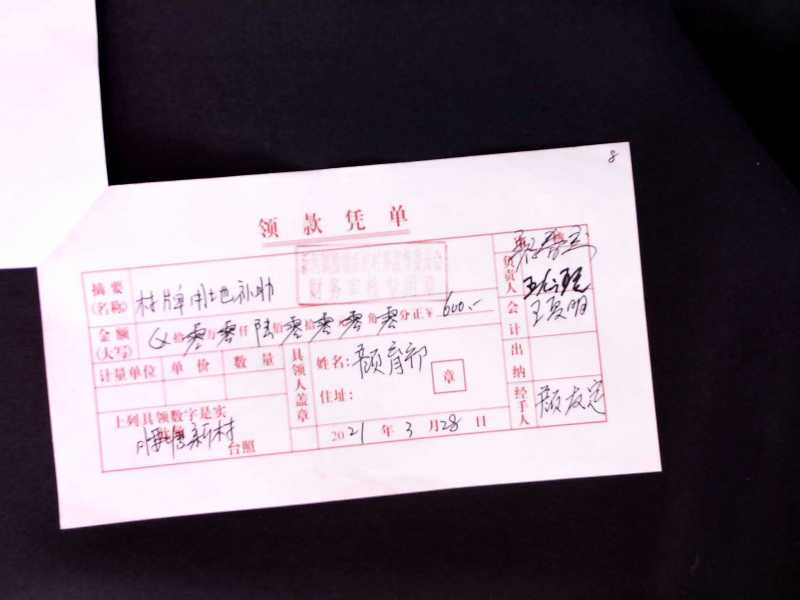 8
领款凭单
摘要
(名称)
村牌用地补助
财务审核专用章
负责人
金额
(大写)
拾零万零仟陆佰零拾零零角零分正￥600.-
会计
计量单位 单价 数量
具领人盖章
姓名：颜育部
住址：
章
出纳
上列具领数字是实
新村
台照
2021年3月28日
经手人
颜友定